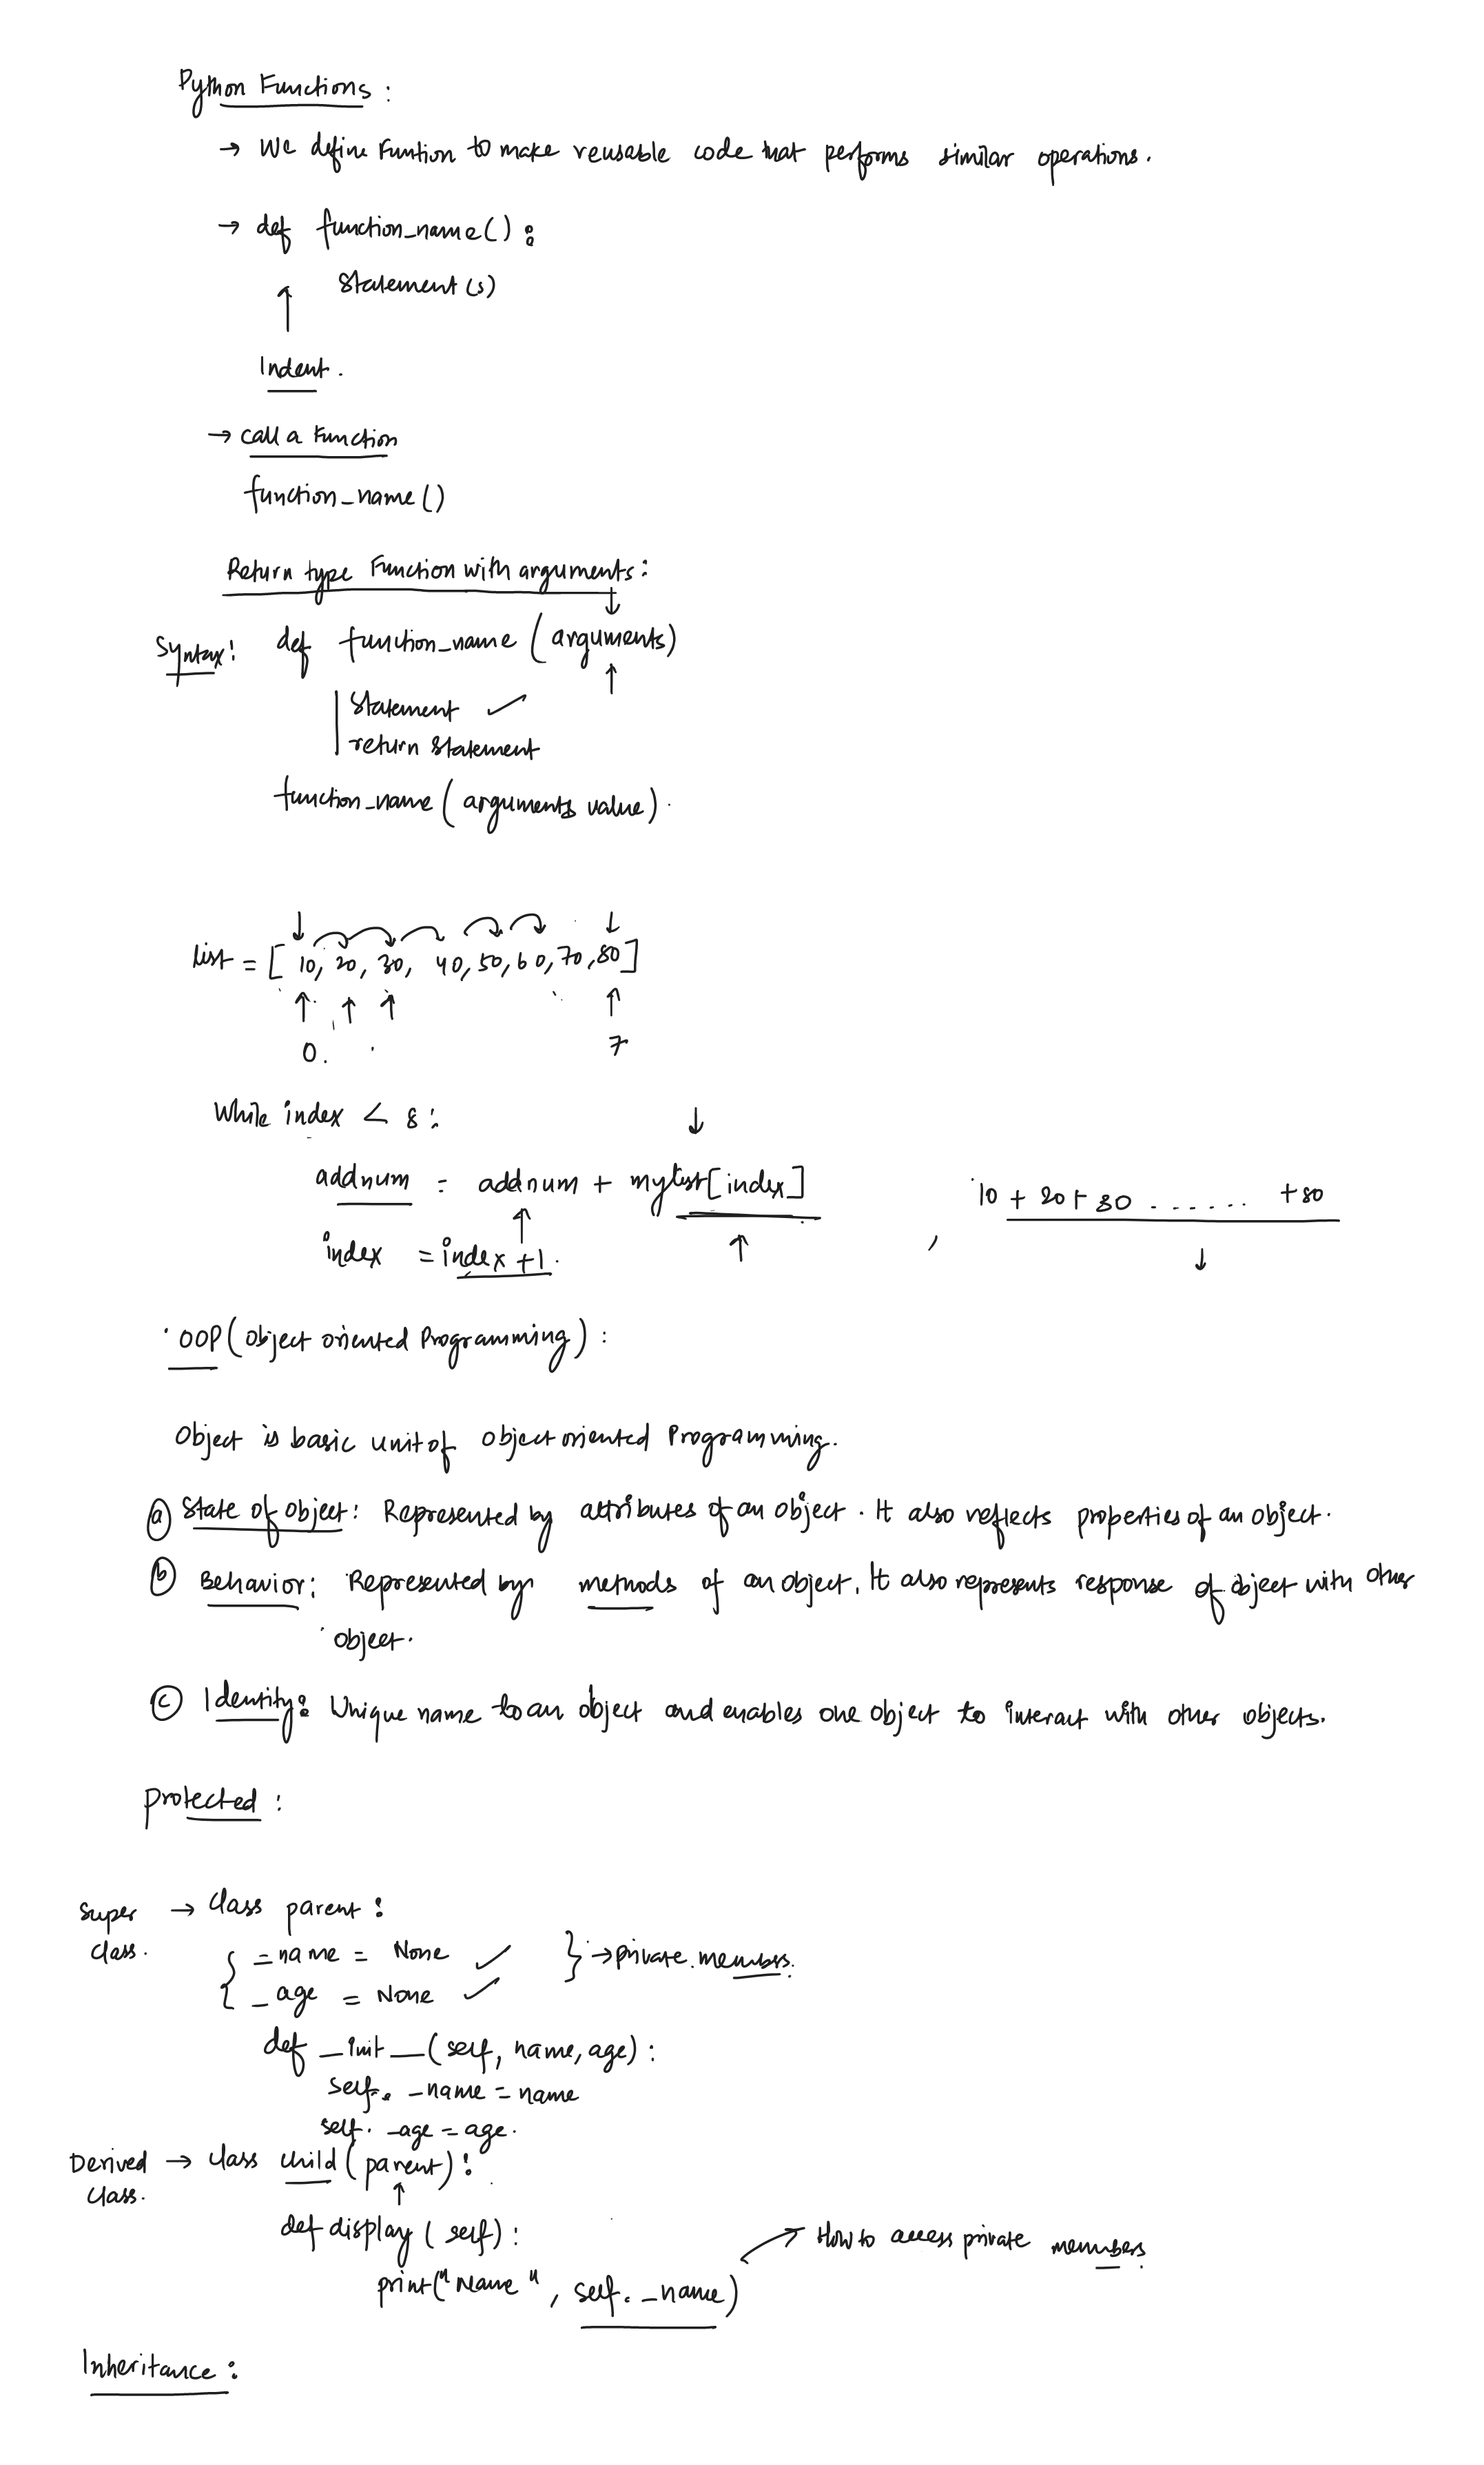 Python Functions :
→ We define Funtion to make reusable code that performs similar operations.
→ def function_name() :
statement(s)
↑
Indent.
→ call a Function
function_name()
Return type Function with arguments :
↓
Syntax : def function_name (arguments)
↑
statement ✓
return statement
function_name (arguments value).
↓ ↓
list = [ 10, 20, 30, 40, 50, 60, 70, 80 ]
↑ ↑ ↑ ↑
0. 7
While index < 8 :
↓
addnum = addnum + mylist[index] , 10 + 20 + 30 ....... + 80
↑ ↑ ↓
index = index + 1.
OOP (Object oriented Programming) :
Object is basic unit of object oriented Programming.
(a) State of object : Represented by attributes of an object. It also reflects properties of an object.
(b) Behavior : Represented by methods of an object. It also represents response of object with other
object.
(c) Identity : Unique name to an object and enables one object to interact with other objects.
Protected :
super → class parent :
class.
{ _name = None ✓ } → private members.
_age = None ✓
def _init__(self, name, age) :
self. _name = name
self. _age = age.
Derived → class child (parent) :
class.
↑
def display ( self) :
→ How to access private members
print("Name", self. _name)
Inheritance :